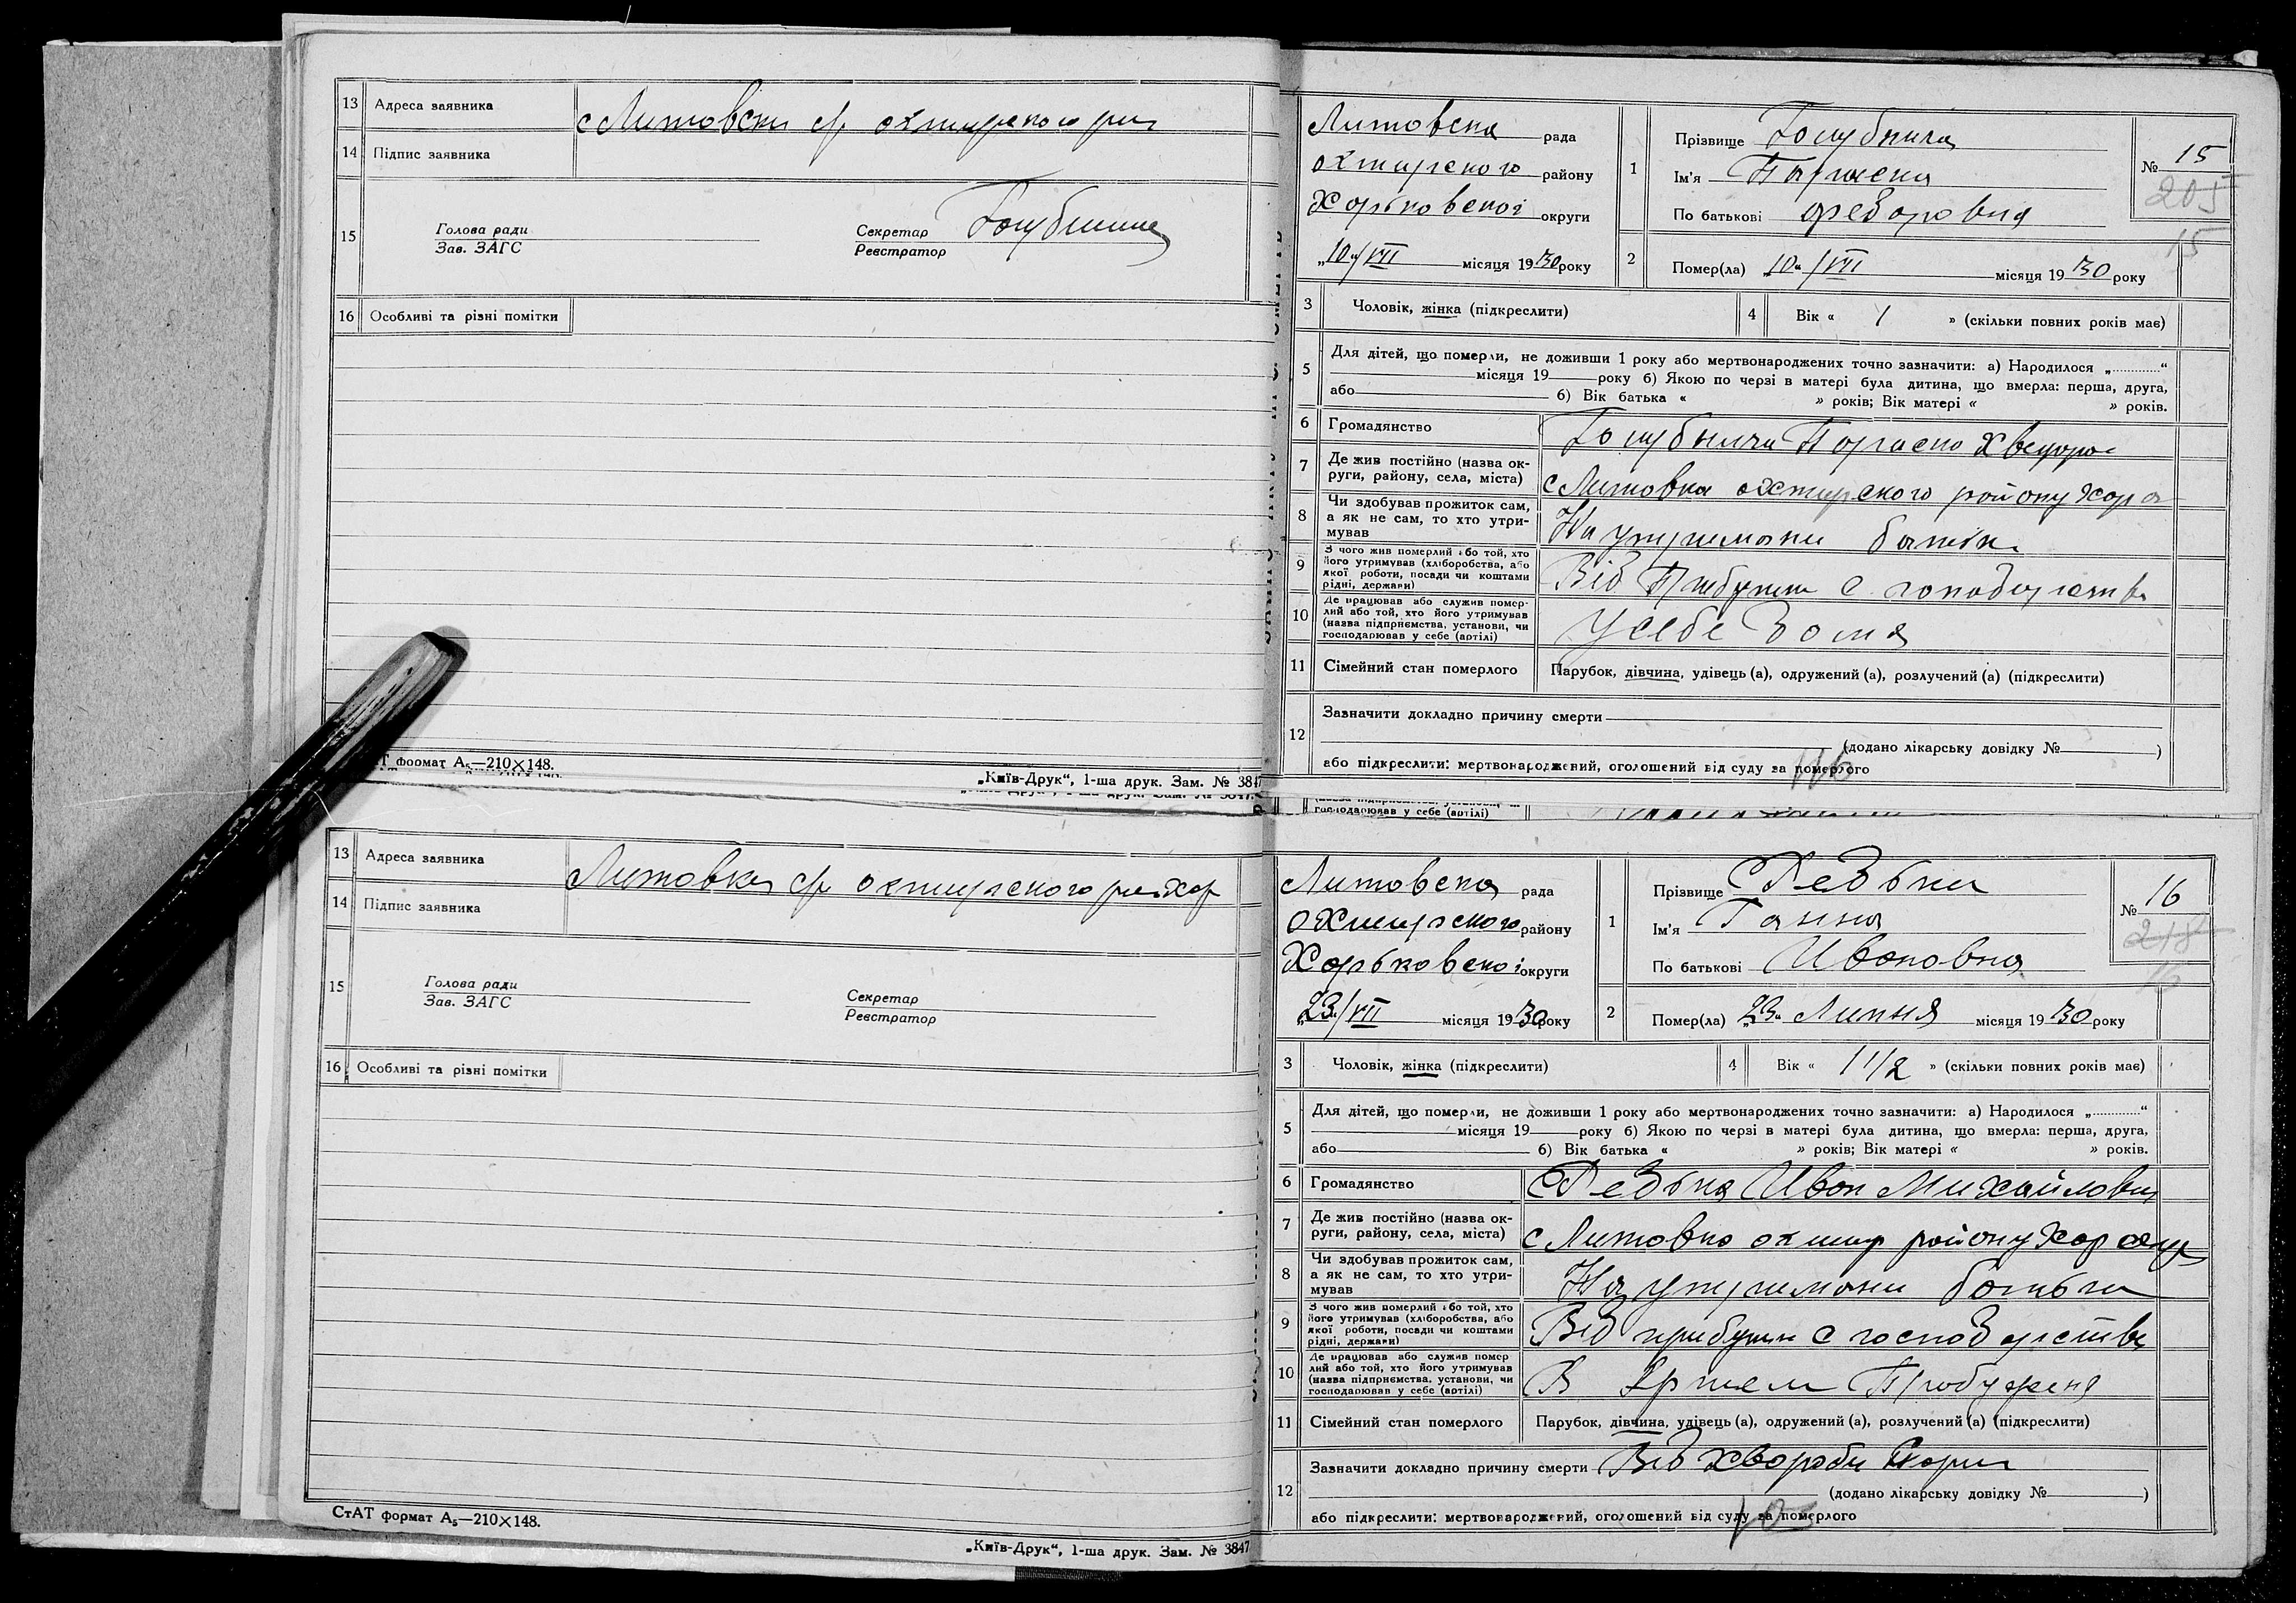 13 Адреса заявника с Литовски с/р охтирского рай
14 Підпис заявника
15 Голова ради
Зав. ЗАГС
Секретар
Реєстратор
16 Особливі та різні помітки
СтАТ формат А₅—210×148.
„Київ-Друк“, 1-ша друк. Зам. № 3847
Литовска рада
охтирского району
Харьковскоі округи
„10“/VII місяця 1930 року
1 Прізвище Голубнича
Ім'я Параска
По батькові Федоровна
№ 15
205
15
2 Помер(ла) „10“/VII місяця 1930 року
3 Чоловік, жінка (підкреслити)
4 Вік « 1 » (скільки повних років має)
5 Для дітей, що померли, не доживши 1 року або мертвонароджених точно зазначити: а) Народилося „.............“
місяця 19 року б) Якою по черзі в матері була дитина, що вмерла: перша, друга,
або б) Вік батька « » років; Вік матері « » років.
6 Громадянство Голубнича Параска Хведоро
7 Де жив постійно (назва ок-
руги, району, села, міста) с Литовка охтирского району Хар о
8 Чи здобував прожиток сам,
а як не сам, то хто утри-
мував На утримани батьк
9 З чого жив померлий або той, хто
його утримував (хліборобства, або
якої роботи, посади чи коштами
рідні, держави) Від Прибутки с господарства
10 Де працював або служив помер-
лий або той, хто його утримував
(назва підприємства, установи, чи
господарював у себе (артілі) У себе Дома
11 Сімейний стан померлого Парубок, дівчина, удівець (а), одружений (а), розлучений (а) (підкреслити)
12 Зазначити докладно причину смерти
(додано лікарську довідку № )
або підкреслити: мертвонароджений, оголошений від суду за померлого
господарював у себе (артілі)
13 Адреса заявника Литовка с/р охтирского рай Хар
14 Підпис заявника
15 Голова ради
Зав. ЗАГС
Секретар
Реєстратор
16 Особливі та різні помітки
СтАТ формат А₅—210×148.
„Київ-Друк“, 1-ша друк. Зам. № 3847
Литовска рада
охтирского району
Харьковскоі округи
„23“/VII місяця 1930 року
1 Прізвище Редька
Ім'я Ганна
По батькові Ивановна
№ 16
218
16
2 Помер(ла) „23“ Липня місяця 1930 року
3 Чоловік, жінка (підкреслити)
4 Вік « 1 1/2 » (скільки повних років має)
5 Для дітей, що померли, не доживши 1 року або мертвонароджених точно зазначити: а) Народилося „.............“
місяця 19 року б) Якою по черзі в матері була дитина, що вмерла: перша, друга,
або б) Вік батька « » років; Вік матері « » років.
6 Громадянство Редька Иван Михайлович
7 Де жив постійно (назва ок-
руги, району, села, міста) с Литовка охтир району Хар окру
8 Чи здобував прожиток сам,
а як не сам, то хто утри-
мував На утримани батька
9 З чого жив померлий або той, хто
його утримував (хліборобства, або
якої роботи, посади чи коштами
рідні, держави) Від прибутки с господарства
10 Де працював або служив помер
лий або той, хто його утримував
(назва підприємства, установи, чи
господарював у себе (артілі) В Артели Пробуженя
11 Сімейний стан померлого Парубок, дівчина, удівець (а), одружений (а), розлучений (а) (підкреслити)
12 Зазначити докладно причину смерти Від хвороби Кори
(додано лікарську довідку № )
або підкреслити: мертвонароджений, оголошений від суду за померлого